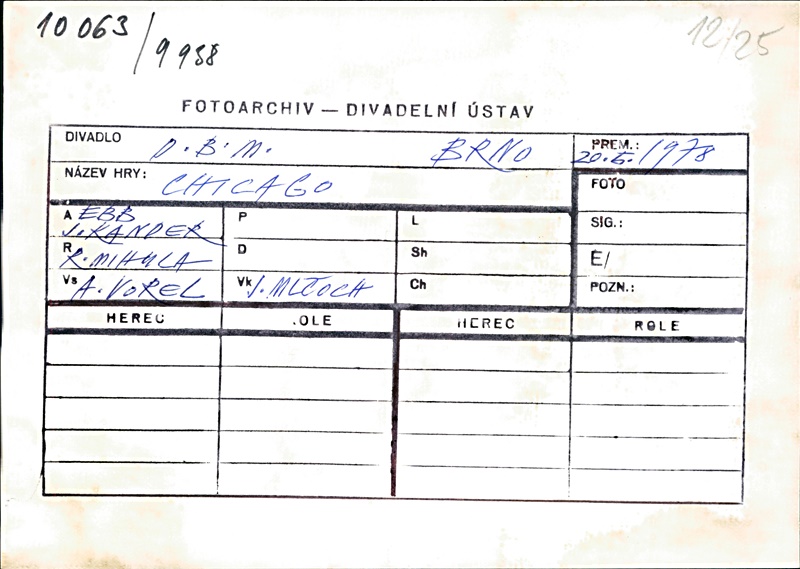 10 063 / 9 938
12/25
FOTOARCHIV — DIVADELNÍ ÚSTAV
DIVADLO D.B.M. BRNO
PREM.: 20.5./1978
NÁZEV HRY: CHICAGO
FOTO
A EBB
J.KANDER
P
L
SIG.:
R R.MIHULA
D
Sh
E/
Vs A.VOREL
Vk J.MLČOCH
Ch
POZN.:
HEREC .OLE HEREC ROLE